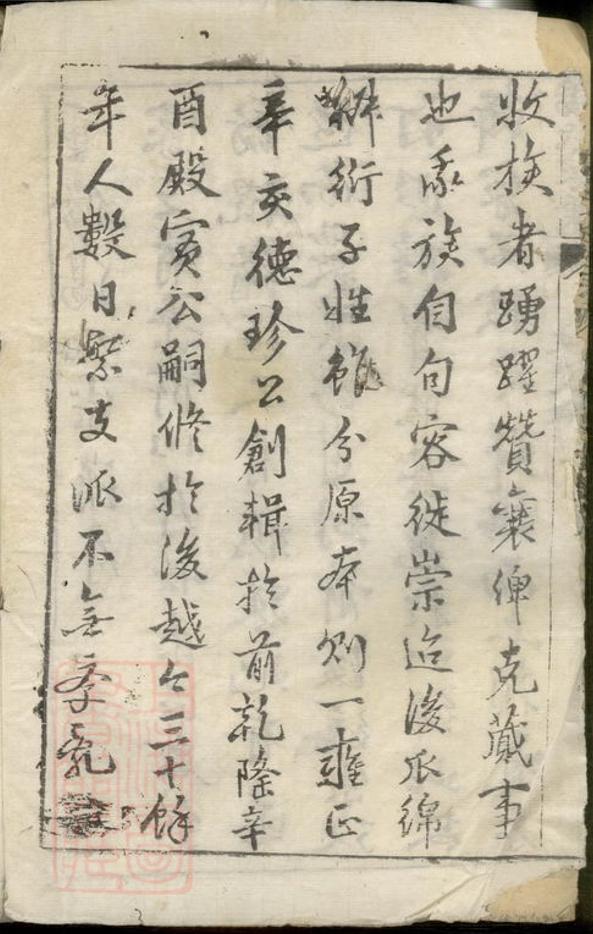 收族者踴躍贊襄俾克蕆事
也我族自句容徙崇迨後瓜綿
衍子姓雖分原本則一雍正
辛亥德珍公創輯於前乾隆辛
酉殿賓公嗣修於後越今三十餘
年人數日繁支派不無紊亂